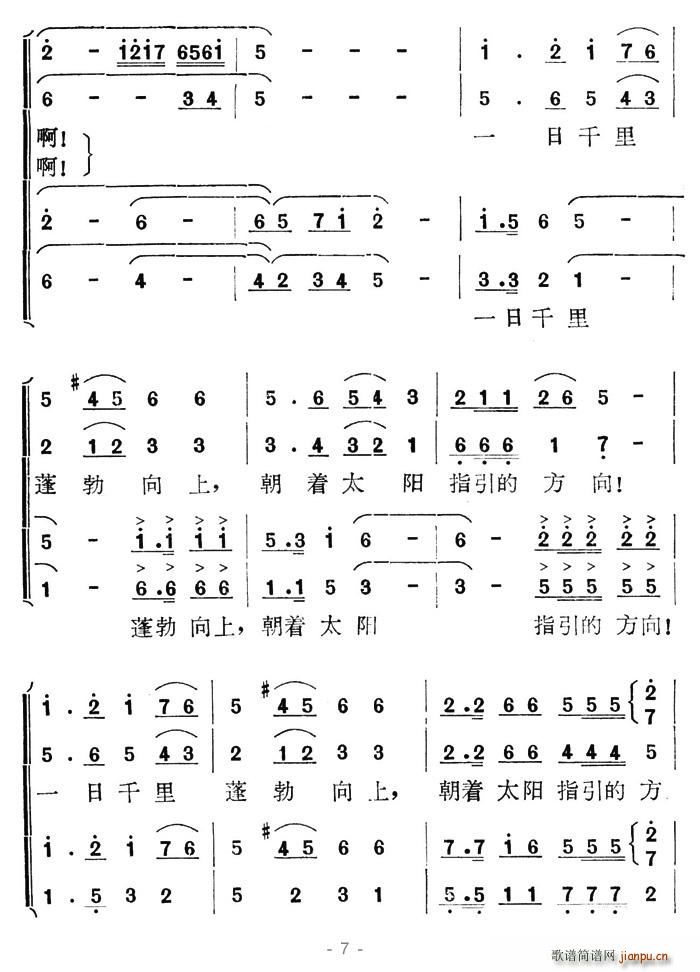 2 - 1217 6561 | 5 - - - | 1 . 2 1 76
6 - - 34 | 5 - - - | 5 . 6 5 43
啊! 一 日千里
啊!
2 - 6 - | 65 71 2 - | 1.5 6 5 -
6 - 4 - | 42 34 5 - | 3.3 2 1 -
一日千里
5 #45 6 6 | 5 . 6 54 3 | 211 26 5 -
2 12 3 3 | 3 . 4 32 1 | 666 1 7 -
蓬 勃 向 上, 朝 着 太 阳 指引的 方 向!
5 - 1.1 11 | 5.3 1 6 - | 6 - 222 22
1 - 6.6 66 | 1.1 5 3 - | 3 - 555 55
蓬勃 向上, 朝着 太 阳 指引的 方向!
1 . 2 1 76 | 5 #45 6 6 | 2.2 66 555 {2 7
5 . 6 5 43 | 2 12 3 3 | 2.2 66 444 5
一 日千 里 蓬 勃 向 上, 朝着 太阳 指引的 方
1 . 2 1 76 | 5 #45 6 6 | 7.7 16 555 {2 7
1 . 5 3 2 | 5 2 3 1 | 5.5 11 777 2
- 7 -
歌谱简谱网
jianpu.cn